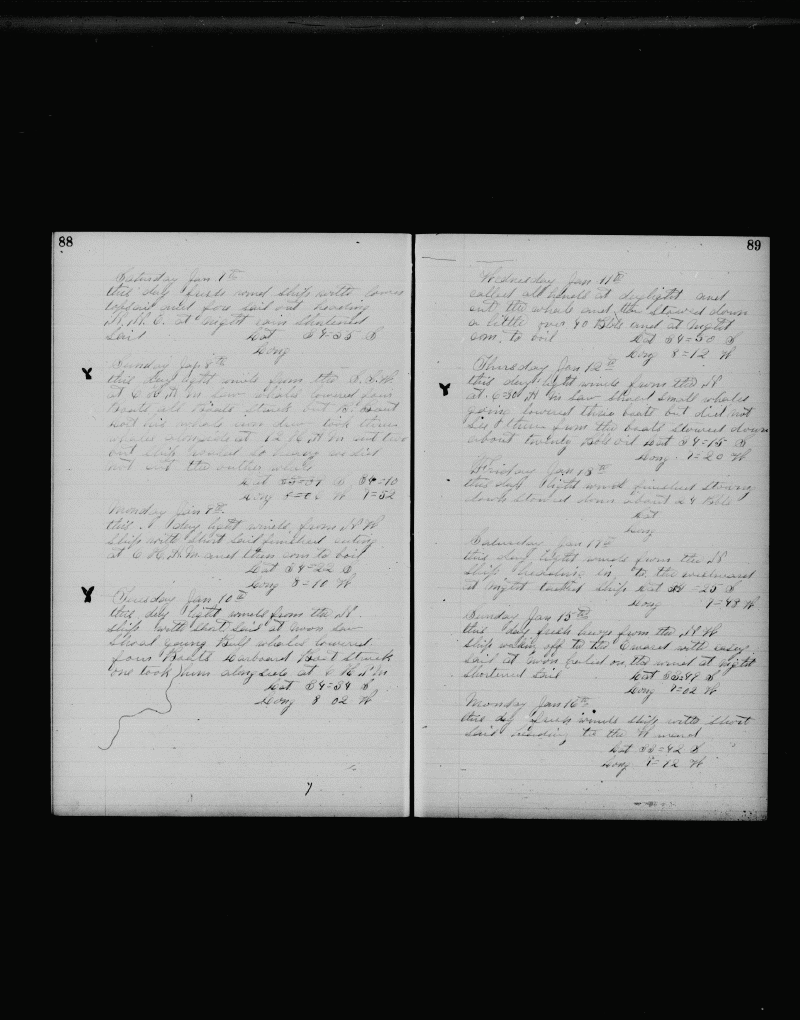 88
Saturday Jan 7th
this day fresh wind ship with lower
topsail and fore sail out heading
at night rain shortened
sail Lat 34=35 S
Long
Sunday Jan 8th
this day light winds from the S.S.W.
at 6 A M saw whales lowered four
Boats all Boats struck but
his whale iron drew took three
whales alongside at 12 M cut two
but ship rolled so heavy we did
not cut the other whale
Lat S 34=10
Long W 7=52
Monday Jan 9th
this day light winds from N W
ship with short sail finished cuting
at 6 H A M and then com to boil
Lat 34=22 S
Long 8=10 W
Tuesday Jan 10th
this day light winds from the N
ship with short sail at noon saw
shoal young Bull whales lowered
four Boats Larboard Boat struck
one took him along side at 6 H P M
Lat 34=34 S
Long 8 02 W
89
Wednesday Jan 11th
called all hands at daylight and
cut the whale and then stowed down
a little over 40 Bbls and at night
com. to boil Lat 34=30 S
Long 8=12 W
Thursday Jan 12th
this day light winds from the N
at 6 30 A M saw shoal small whales
going lowered three boats but did not
get them from the boats stowed down
about twenty Bbls oil Lat 34=15 S
Long. 7=20 W
Friday Jan 13th
this day light wind finished stowing
down stowed down about 24 Bbls
Lat
Long
Saturday Jan 14th
this day light winds from the N
ship heading in to the westward
at night tacked ship Lat 34=25 S
Long 7=43 W
Sunday Jan 15th
this day fresh breeze from the N W
ship working off to the E ward with easy
sail at noon hauled on the wind at night
shortened sail Lat 33=47 S
Long 7=02 W
Monday Jan 16th
this day fresh winds ship with short
sail heading to the W ward
Lat 33=42 S
Long 7=12 W